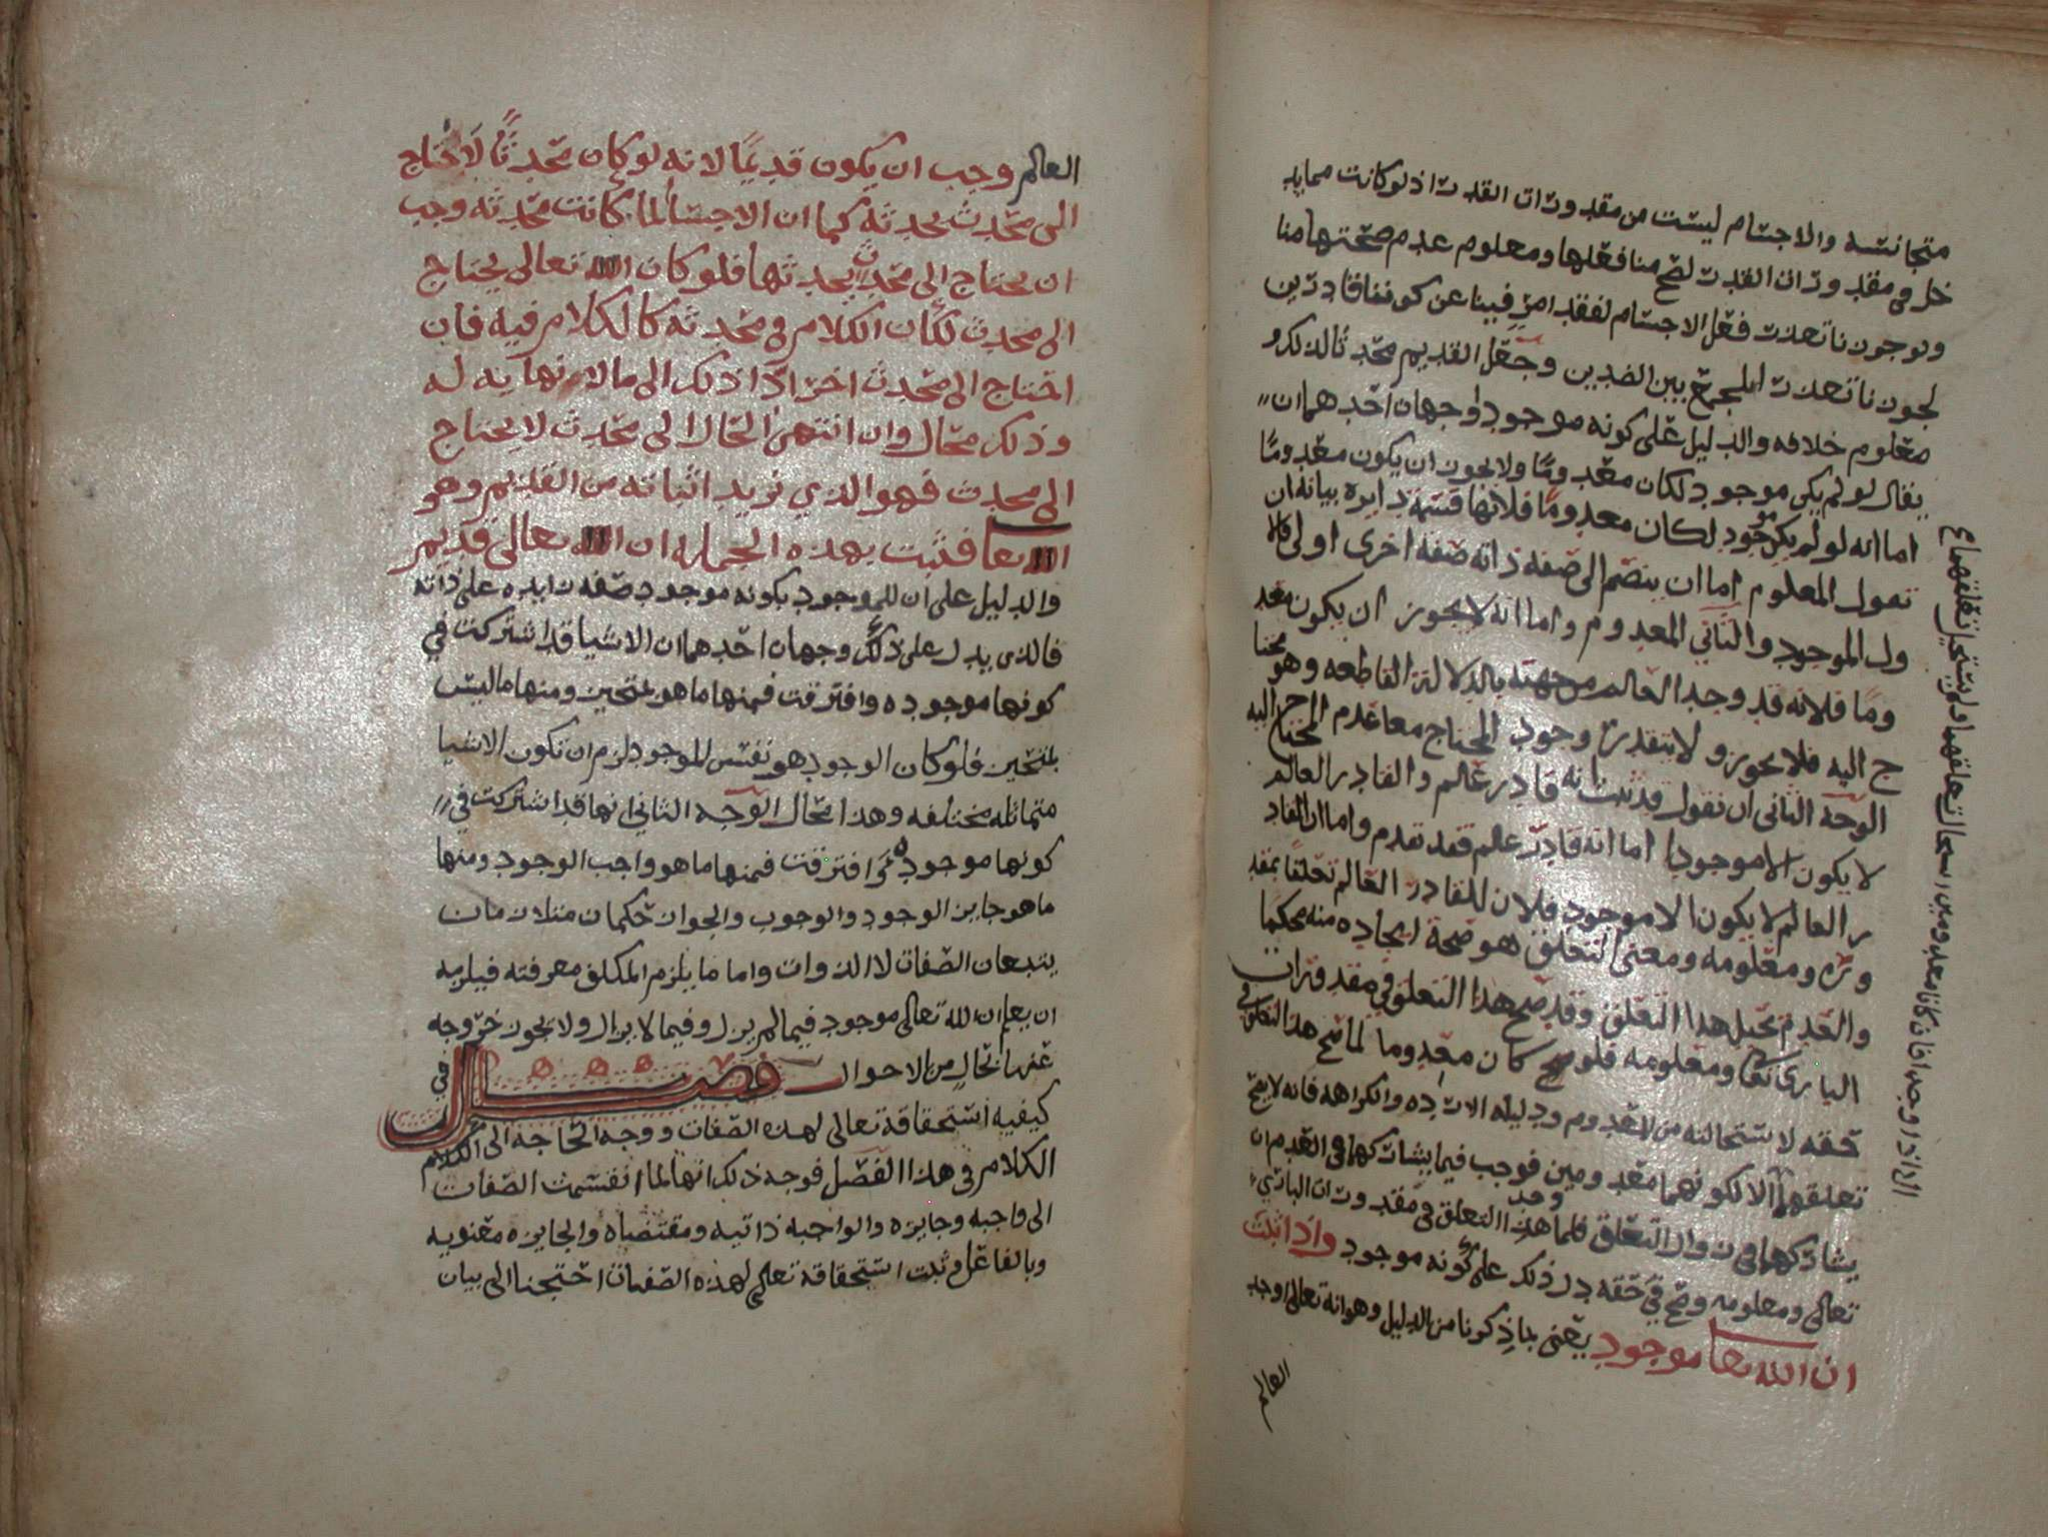 متجانسه والاجسام ليست من مقدورات القدر اذ لو كانت مما يد
خل في مقدورات القدر لصح منا فعلها ومعلوم عدم صحتها منا
ولو جوزنا تعذر فعل الاجسام لفقد امر فينا عن كوننا قادرين
لجوزنا تعذر الجمع بين الضدين وجعل القديم محدثا لذلك و
معلوم خلافه والدليل على كونه موجودا وجهان احدهما ان
يقال لو لم يكن موجود لكان معدوما ولا يجوز ان يكون معدوما
اما انه لو لم يكن موجود لكان معدوما فلانها قسمة دايره بيانه ان
نقول المعلوم اما ان ينضم الى صفة ذاته صفه اخرى او لا فالا
ول الموجود والثاني المعدوم واما انه لا يجوز ان يكون معد
وما فلانه قد وجد العالم من جهته بالدلالة القاطعه وهو محتا
ج اليه فلا يجوز ولا يتقدر وجود المحتاج مع عدم المحتاج اليه
الوجه الثاني ان نقول قد ثبت انه قادر عالم والقادر العالم
لا يكون الا موجودا اما انه قادر عالم فقد تقدم واما ان القاد
ر العالم لا يكون الا موجود فلان للقادر العالم تعلقا بمقد
وره ومعلومه ومعنى التعلق هو صحة ايجاده منه محكما
والعدم يحيل هذا التعلق وقد صح هذا التعلق في مقدورات
الباري تعا ومعلومه فلو كان معدوما لما صح هذا التعلق في
حقه لاستحالته من المعدوم ودليله الارادة والكراهه فانه لا يصح
تعلقهما الا لكونهما معدومين فوجب فيما يشاركهما في العدم ان
يشاركهما في زوال التعلق فلما وجد هذا التعلق في مقدورات الباري
تعالى ومعلومه وصح في حقه دل ذلك على كونه موجود واذا ثبت
ان الله تعا موجود يعني بما ذكرنا من الدليل وهو انه تعالى اوجد
العالم
العالم وجب ان يكون قديما لانه لو كان محدثا لاحتاج
الى محدث يحدثه كما ان الاجسام لما كانت محدثه وجب
ان يحتاج الى محدث يحدثها فلو كان الله تعالى يحتاج
الى محدث لكان الكلام في محدثه كالكلام فيه فان
احتاج الى محدث اخر ادا ذلك الى مالا نهايه له
وذلك محال وان انتهى الحال الى محدث لا يحتاج
الى محدث فهو الذي نريد اثباته من القديم وهو
الله تعا فثبت بهذه الجمله ان الله تعالى قديم
والدليل على ان للموجود بكونه موجود صفه زايده على ذاته
فالذي يدل على ذلك وجهان احدهما ان الاشيا قد اشتركت في
كونها موجوده وافترقت فمنها ما هو متحيز ومنها ما ليس
بمتحيز فلو كان الوجود هو نفس الموجود لزم ان تكون الاشيا
متماثله مختلفه وهذا محال الوجه الثاني انها قد اشتركت في
كونها موجوده وافترقت فمنها ما هو واجب الوجود ومنها
ما هو جايز الوجود والوجوب والجواز حكمان مثلازمان
يتبعان الصفات لا الذوات واما ما يلزم المكلف معرفته فيلزمه
ان يعلم ان الله تعالى موجود فيما لم يزل وفيما لا يزال ولا يجوز خروجه
عنها بحال من الاحوال فصل في
كيفيه استحقاقه تعالى لهذه الصفات ووجه الحاجه الى الكلام
الكلام في هذا الفصل فوجه ذلك انها لما انقسمت الصفات
الى واجبه وجايزه والواجبه ذاتيه ومقتضاه والجايزه معنويه
وبالفاعل وثبت استحقاقه تعالى لهذه الصفات احتجنا الى بيان